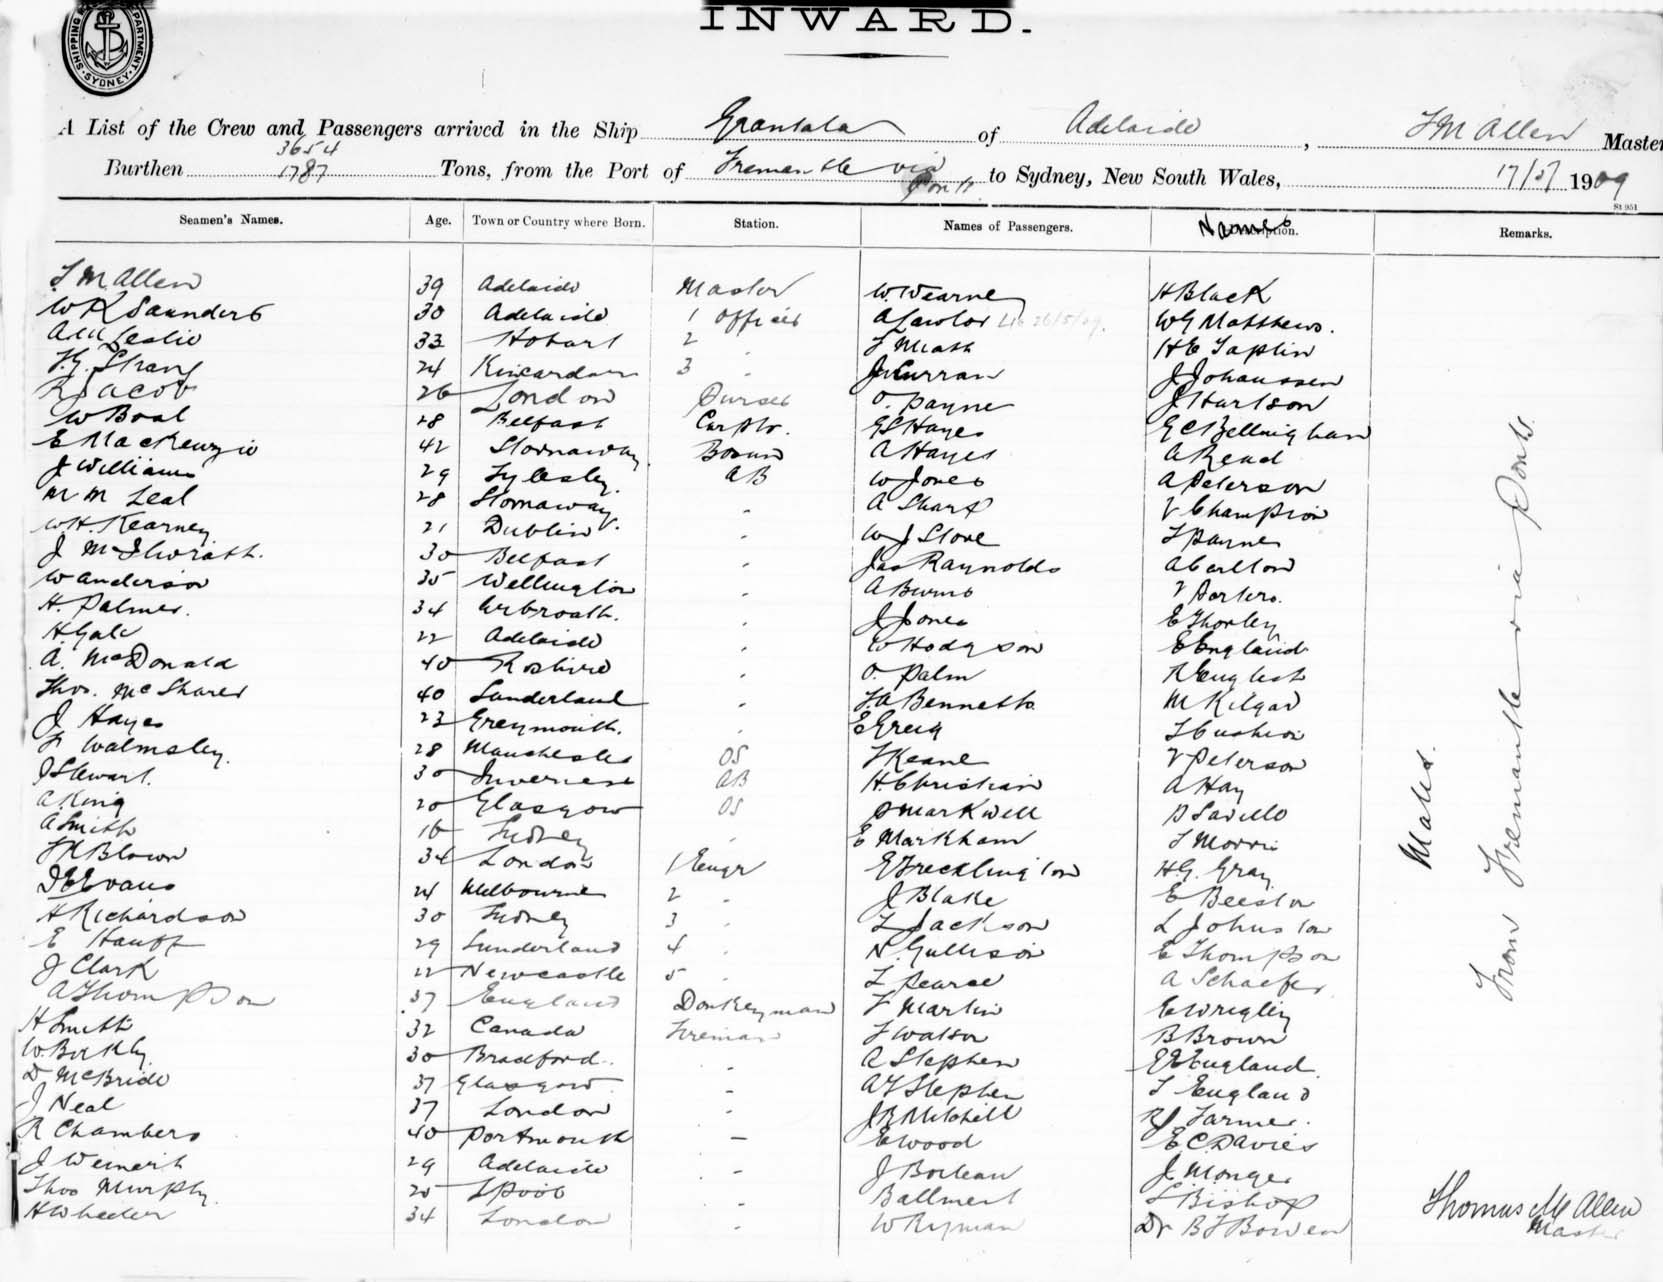 INWARD.
SHIPPING DEPARTMENT SYDNEY
A List of the Crew and Passengers arrived in the Ship Grantala of Adelaide, T M Allen Master
3654
Burthen 1787 Tons, from the Port of Fremantle via Ports to Sydney, New South Wales, 17/5/1909
St 951
Seamen's Names. Age. Town or Country where Born. Station. Names of Passengers. Names Remarks.
T M Allen 39 Adelaide Master W. Wearne H Black
W K Saunders 30 Adelaide 1 Officer A Lawlor W G Matthews.
Leslie 33 Hobart 2 " T Meath H E Taplin
T. G. Strang 24 Kincardine 3 " J Curran J Johanssen
R Jacob 26 London Purser O. Payne J Harlson
W Boal 28 Belfast Carptr. G S Hayes G C Bellingham
E MacKenzie 42 Stornaway Bosun A Hayes A Read
J Williams 29 Tylesley. AB W Jones A Peterson
M M Leal 28 Stornaway. " A Sharp V Champion
W H. Kearney 21 Dublin. " W J Stone T Payne
J McIlwrath. 30 Belfast " Jas Raynolds A Carlton
W Anderson 35 Wellington " A Burns V Porters.
H. Palmer. 34 Arbroath. " J Jones E Thorley
H Gale 22 Adelaide " W Hodgson E England
A. McDonald 40 " O. Palm R English
Thos. McSharer 40 Sunderland " T. A Bennett M Kilgar
J Hayes 23 Greymouth. " E Greig T Cushion
F Walmsley. 28 Manchester OS T Keane V Peterson
J Stewart. 30 Inverness AB H. Christian A Hay
A. King 20 Glasgow OS Markwell D Saville
A Smith 16 Sydney " E Markham T Morris
Brown 34 London 1 Engr E Frecklington H. G. Gray
Evans 24 Melbourne 2 " J Blake E Beeston
H Richardson 30 Sydney 3 " L Jackson L Johnston
E Hauff 29 Sunderland 4 " N. Gullison E Thompson
J Clark 22 Newcastle 5 " L Pearce A Schaefer
A Thompson 37 England Donkeyman F Martin E Wrigley
H Smith 32 Canada Fireman T Watson B Brown
W. 30 Bradford. " A Stephen England.
D McBride 37 Glasgow " A T Stephen T England
J Neal 37 London " J R Mitchell Farmer.
R Chambers 40 Portmouth — E Wood E C Davies
J Weinert 29 Adelaide " J Boileau J. Monger
Thos Murphy. 25 L'Pool " Ballment L Bishop
H Wheeler 34 London " W Ryman Dr B T Bowen
Males.
From Fremantle via Ports.
Thomas M Allen
Master